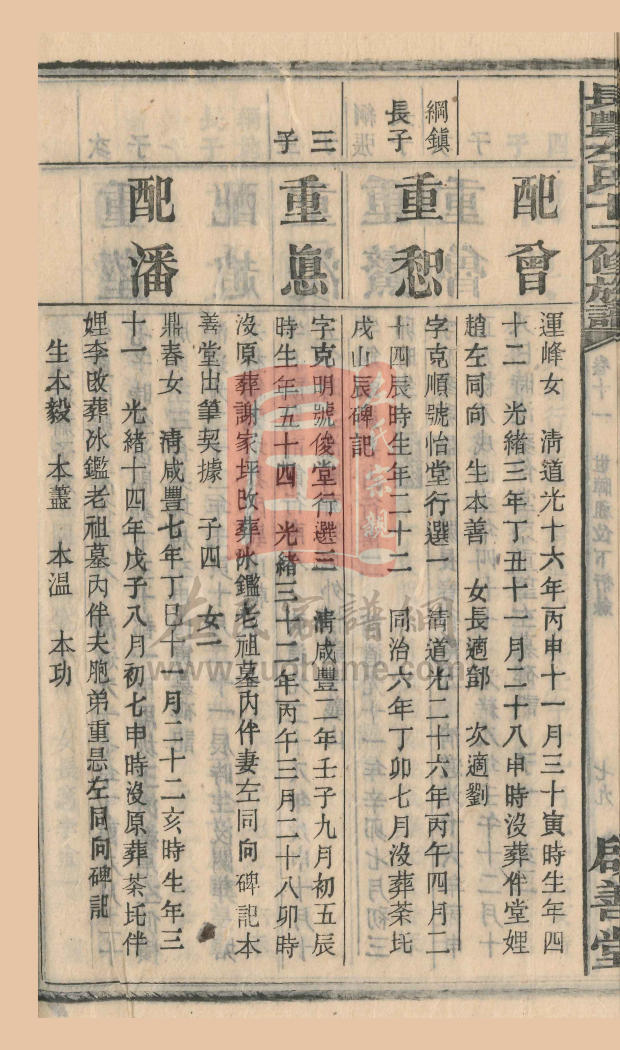 長豐左氏十二修族譜
卷十一
七九
啟善堂
配曾
運峰女 清道光十六年丙申十一月三十寅時生年四
十二 光緒三年丁丑十一月二十八申時沒葬伴堂娌
趙左同向 生本善 女長適鄒 次適劉
綱鎮
長子
重恕
字克順號怡堂行選一 清道光二十六年丙午四月二
十四辰時生年二十二 同治六年丁卯七月沒葬茶圫
戌山辰碑記
三
子
重息
字克明號俊堂行選三 清咸豐二年壬子九月初五辰
時生年五十四 光緒三十二年丙午三月二十八卯時
沒原葬謝家坪改葬氷鑑老祖墓內伴妻左同向碑記本
善堂出筆契據 子四 女二
配潘
鼎春女 清咸豐七年丁巳十一月二十二亥時生年三
十一 光緒十四年戊子八月初七申時沒原葬茶圫伴
娌李改葬冰鑑老祖墓內伴夫胞弟重悬左同向碑記
生本毅 本藎 本温 本功
左氏家譜網
www.zuohome.com